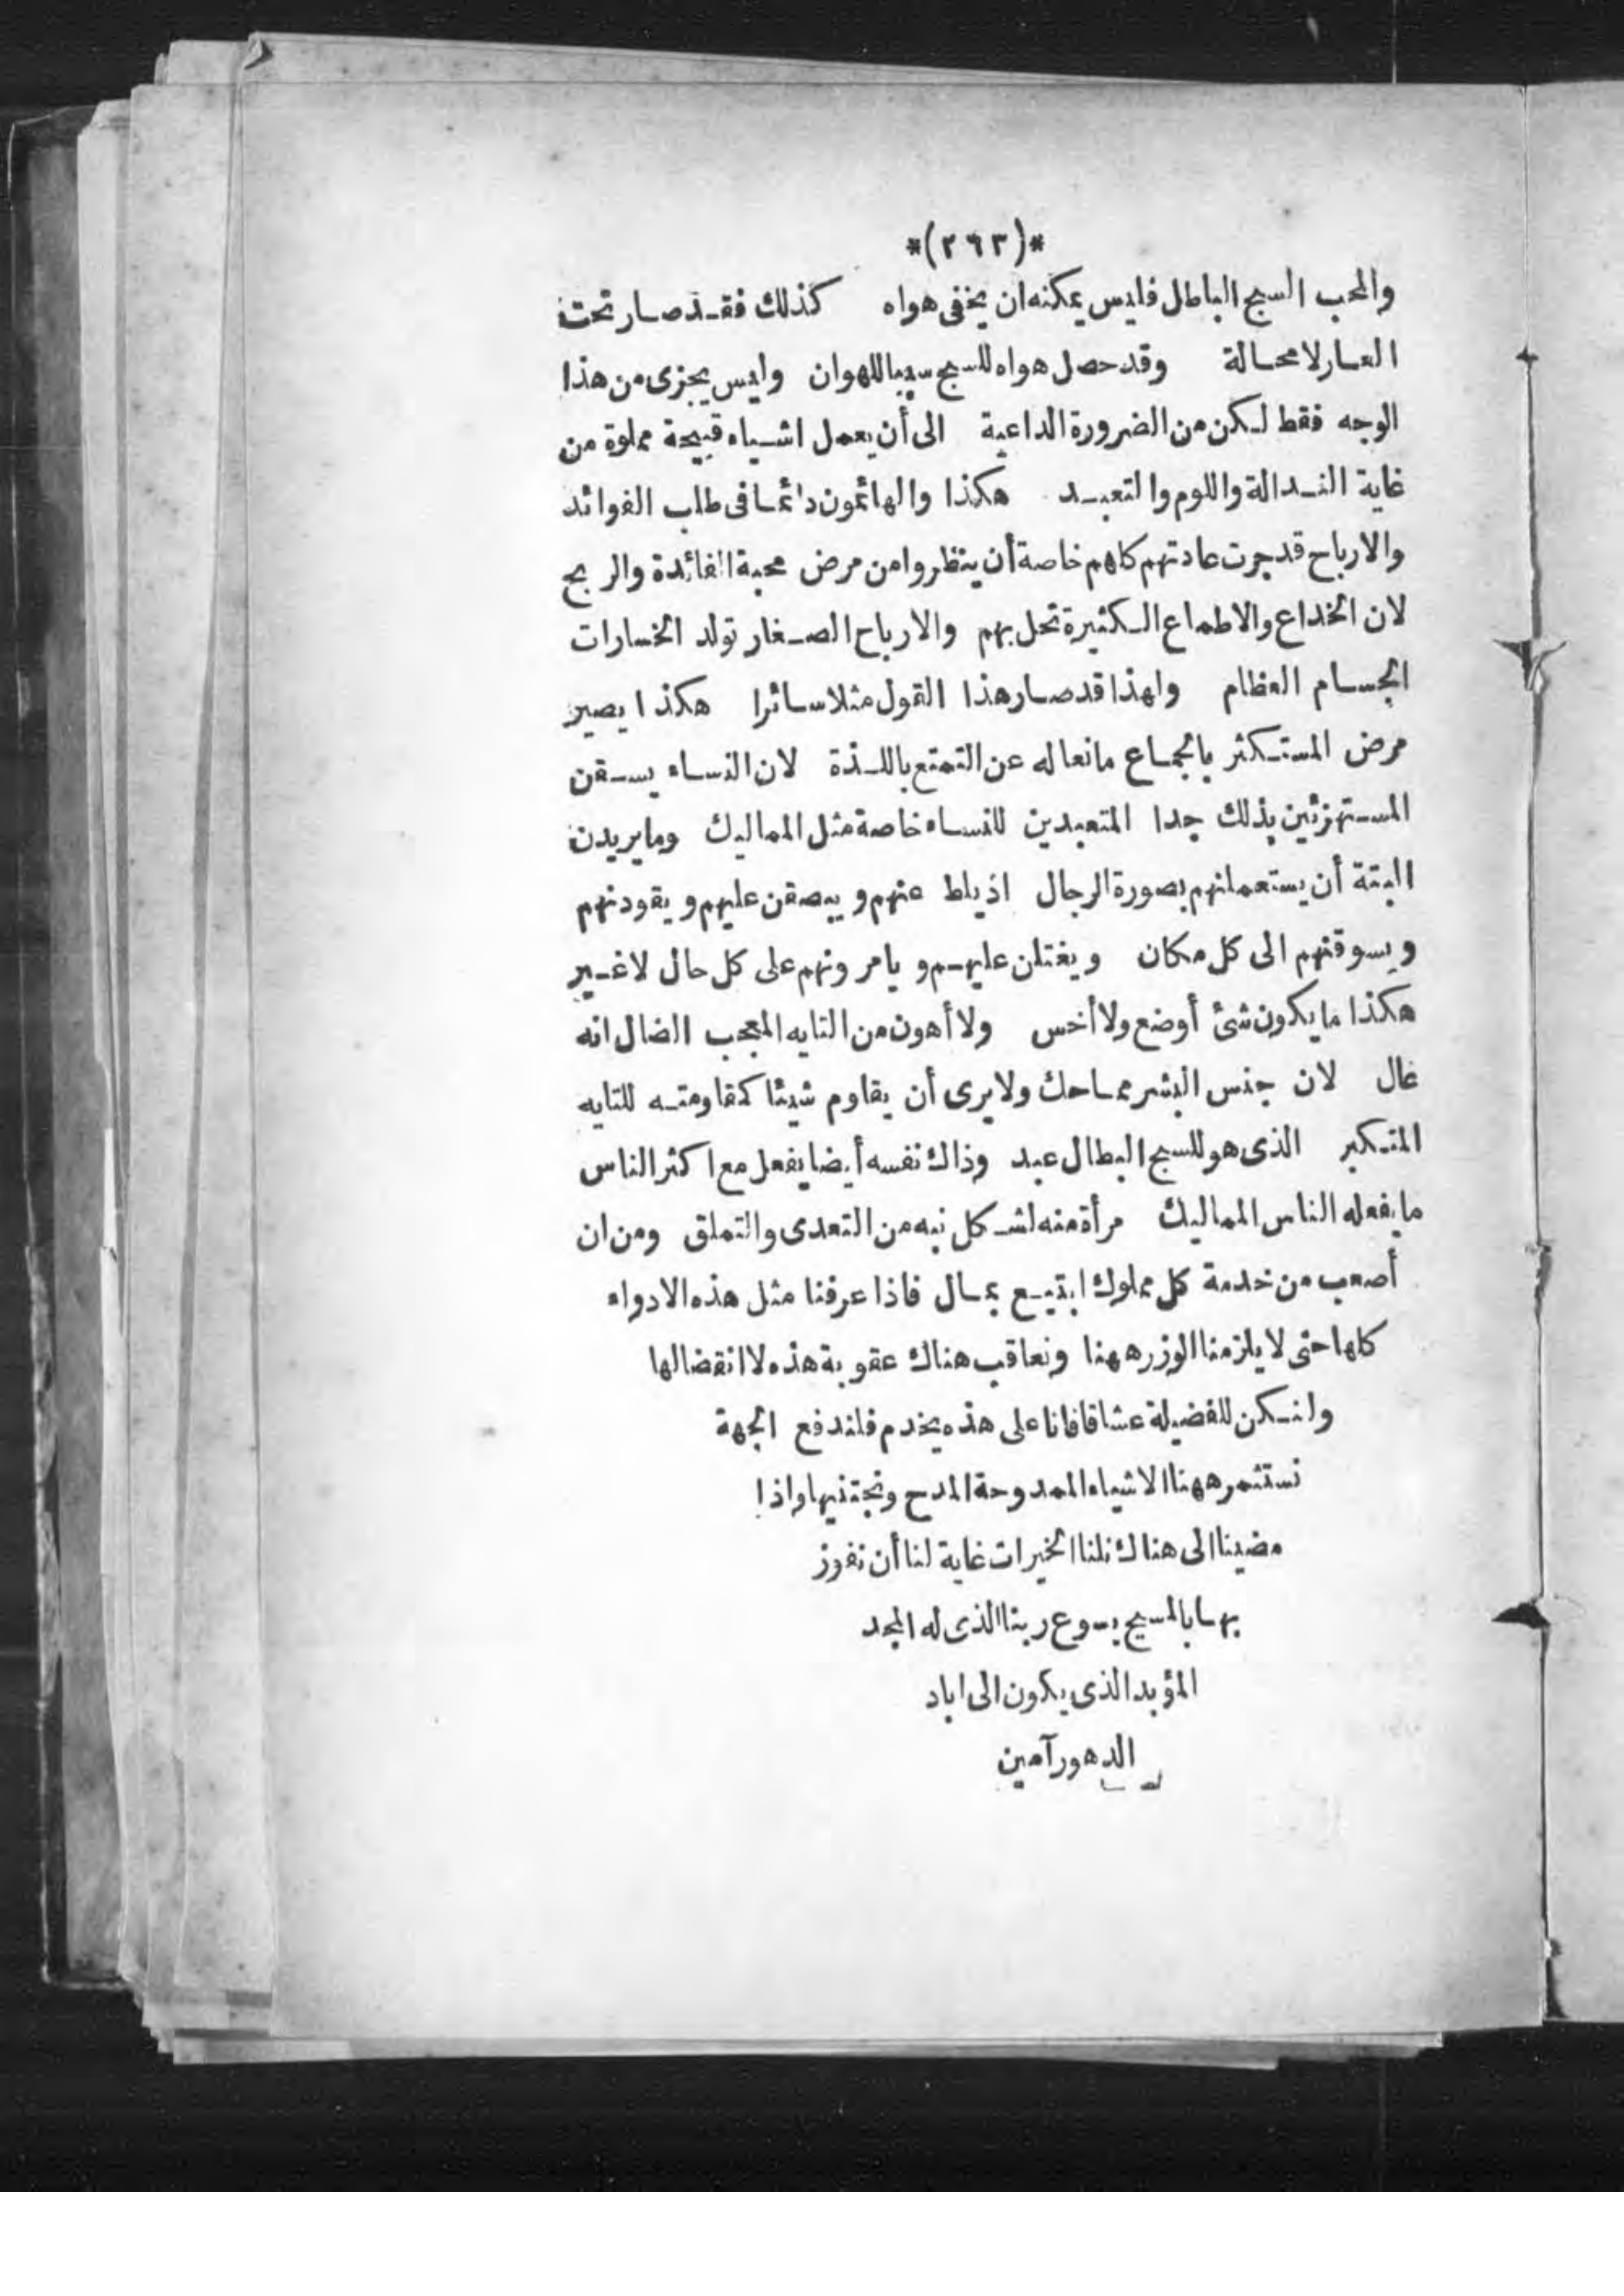 *(٢٦٣)*
والمحب السبح الباطل فليس يمكنه ان يخفى هواه كذلك فقد صار تحت
العار لا محالة وقد حصل هواه للسبح سببا للهوان وليس يجزى من هذا
الوجه فقط لكن من الضرورة الداعية الى أن يعمل اشياء قبيحة مملوة من
غاية النذالة واللوم والتعبد هكذا والهائمون دائما فى طلب الفوائد
والارباح قد جرت عادتهم كلهم خاصة أن ينظروا من مرض محبة الفائدة والربح
لان الخداع والاطماع الكثيرة تحل بهم والارباح الصغار تولد الخسارات
الجسام العظام ولهذا قد صار هذا القول مثلا سائرا هكذا يصير
مرض المستكثر بالجماع مانعا له عن التمتع باللذة لان النساء يسقن
المستهزئين بذلك جدا المتعبدين للنساء خاصة مثل المماليك وما يردن
البتة أن يستعملنهم بصورة الرجال اذ يلط عنهم ويبصقن عليهم ويقودنهم
ويسوقنهم الى كل مكان ويغتلن عليهم ويامرونهم على كل حال لا غير
هكذا ما يكون شئ أوضع ولا أخس ولا أهون من التايه المعجب الضال انه
عال لان جنس البشر مماحك ولا يرى أن يقاوم شيئا كمقاومته للتايه
المتكبر الذى هو للسبح البطال عبد وذاك نفسه أيضا يفعل مع اكثر الناس
ما يفعله الناس المماليك مرأة منه لشكل نبه من التعدى والتملق ومن ان
أصعب من خدمة كل مملوك ابتيع بمال فاذا عرفنا مثل هذه الادواء
كلها حتى لا يلزمنا الوزر ههنا ونعاقب هناك عقوبة هذه لا انقضا لها
ولنكن للفضيلة عشاقا فانا على هذه يخدم فلندفع الجهة
نستثمر ههنا الاشياء الممدوحة المدح ونجتنيها واذا
مضينا الى هناك نلنا الخيرات غاية لنا أن نفوز
بها بالمسيح يسوع ربنا الذى له المجد
المؤبد الذى يكون الى اباد
الدهور آمين